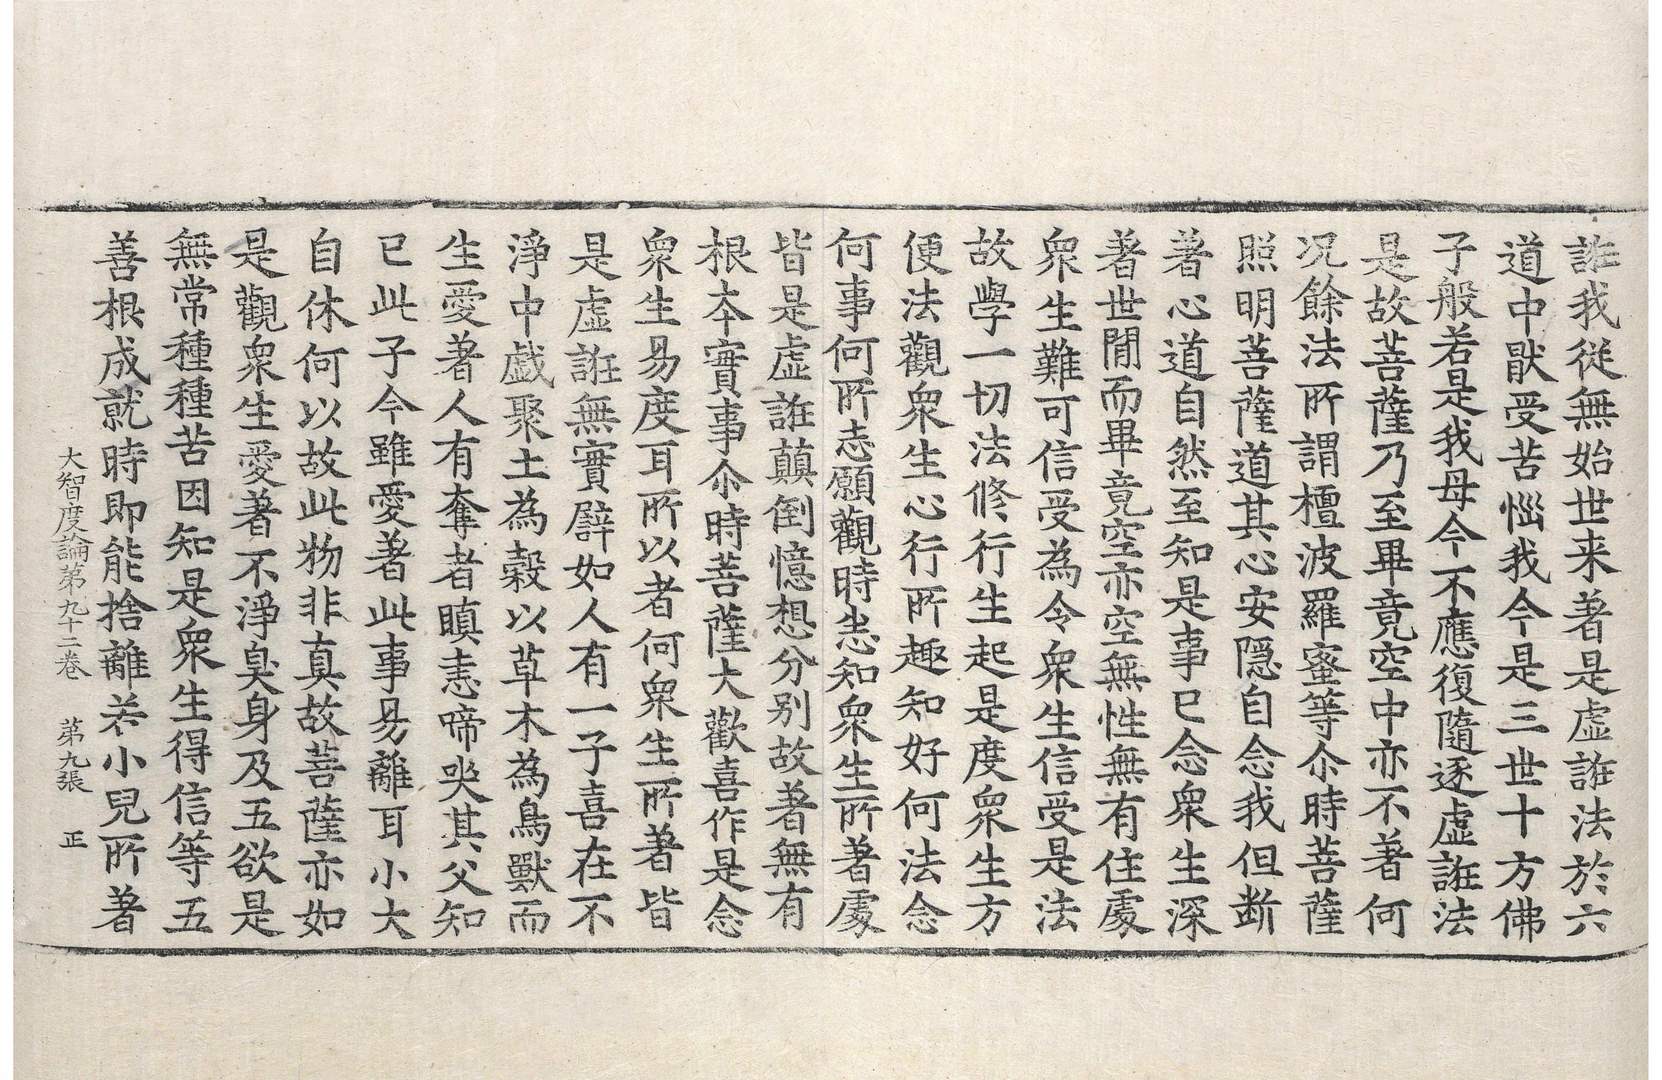 誑我従無始世来著是虚誑法於六
道中猒受苦惱我今是三世十方佛
子般若是我母今不應復隨逐虚誑法
是故菩薩乃至畢竟空中亦不著何
况餘法所謂檀波羅蜜等尒時菩薩
照明菩薩道其心安隠自念我但断
著心道自然至知是事已念衆生深
著世間而畢竟空亦空無性無有住處
衆生難可信受為令衆生信受是法
故學一切法修行生起是度衆生方
便法觀衆生心行所趣知好何法念
何事何所志願觀時悉知衆生所著處
皆是虚誑顛倒憶想分别故著無有
根本實事尒時菩薩大歡喜作是念
衆生易度耳所以者何衆生所著皆
是虚誑無實譬如人有一子喜在不
淨中戯聚土為穀以草木為鳥獸而
生愛著人有奪者瞋恚啼哭其父知
已此子今雖愛著此事易離耳小大
自休何以故此物非真故菩薩亦如
是觀衆生愛著不淨臭身及五欲是
無常種種苦因知是衆生得信等五
善根成就時即能捨離若小兒所著
大智度論第九十二卷 第九張 正